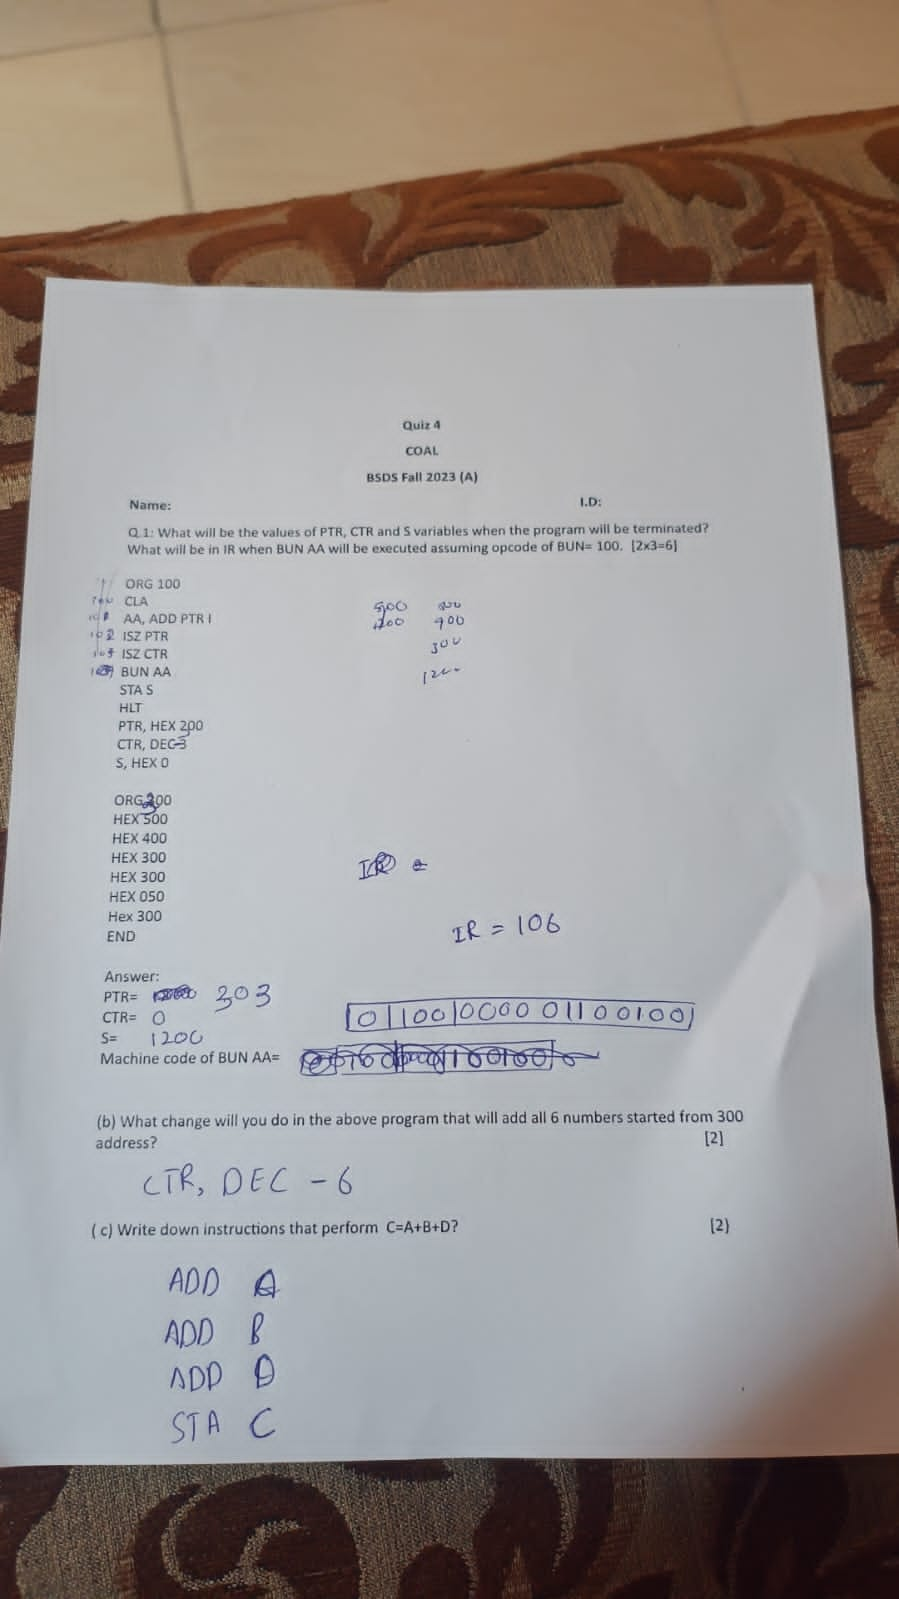 Quiz 4
COAL
BSDS Fall 2023 (A)
Name: I.D:
Q.1: What will be the values of PTR, CTR and S variables when the program will be terminated?
What will be in IR when BUN AA will be executed assuming opcode of BUN= 100. [2x3=6]
ORG 100
100 CLA
101 AA, ADD PTR I
102 ISZ PTR
103 ISZ CTR
BUN AA
STA S
HLT
PTR, HEX 300
CTR, DEC-3
S, HEX 0
900
400 900
300
ORG 300
HEX 500
HEX 400
HEX 300
HEX 300
HEX 050
Hex 300
END
IR =
IR = 106
Answer:
PTR= 303
CTR= 0
S= 1200
0 | 100 | 0000 01100100
Machine code of BUN AA=
(b) What change will you do in the above program that will add all 6 numbers started from 300
address? [2]
CTR, DEC -6
( c) Write down instructions that perform C=A+B+D? [2]
ADD A
ADD B
ADD D
STA C